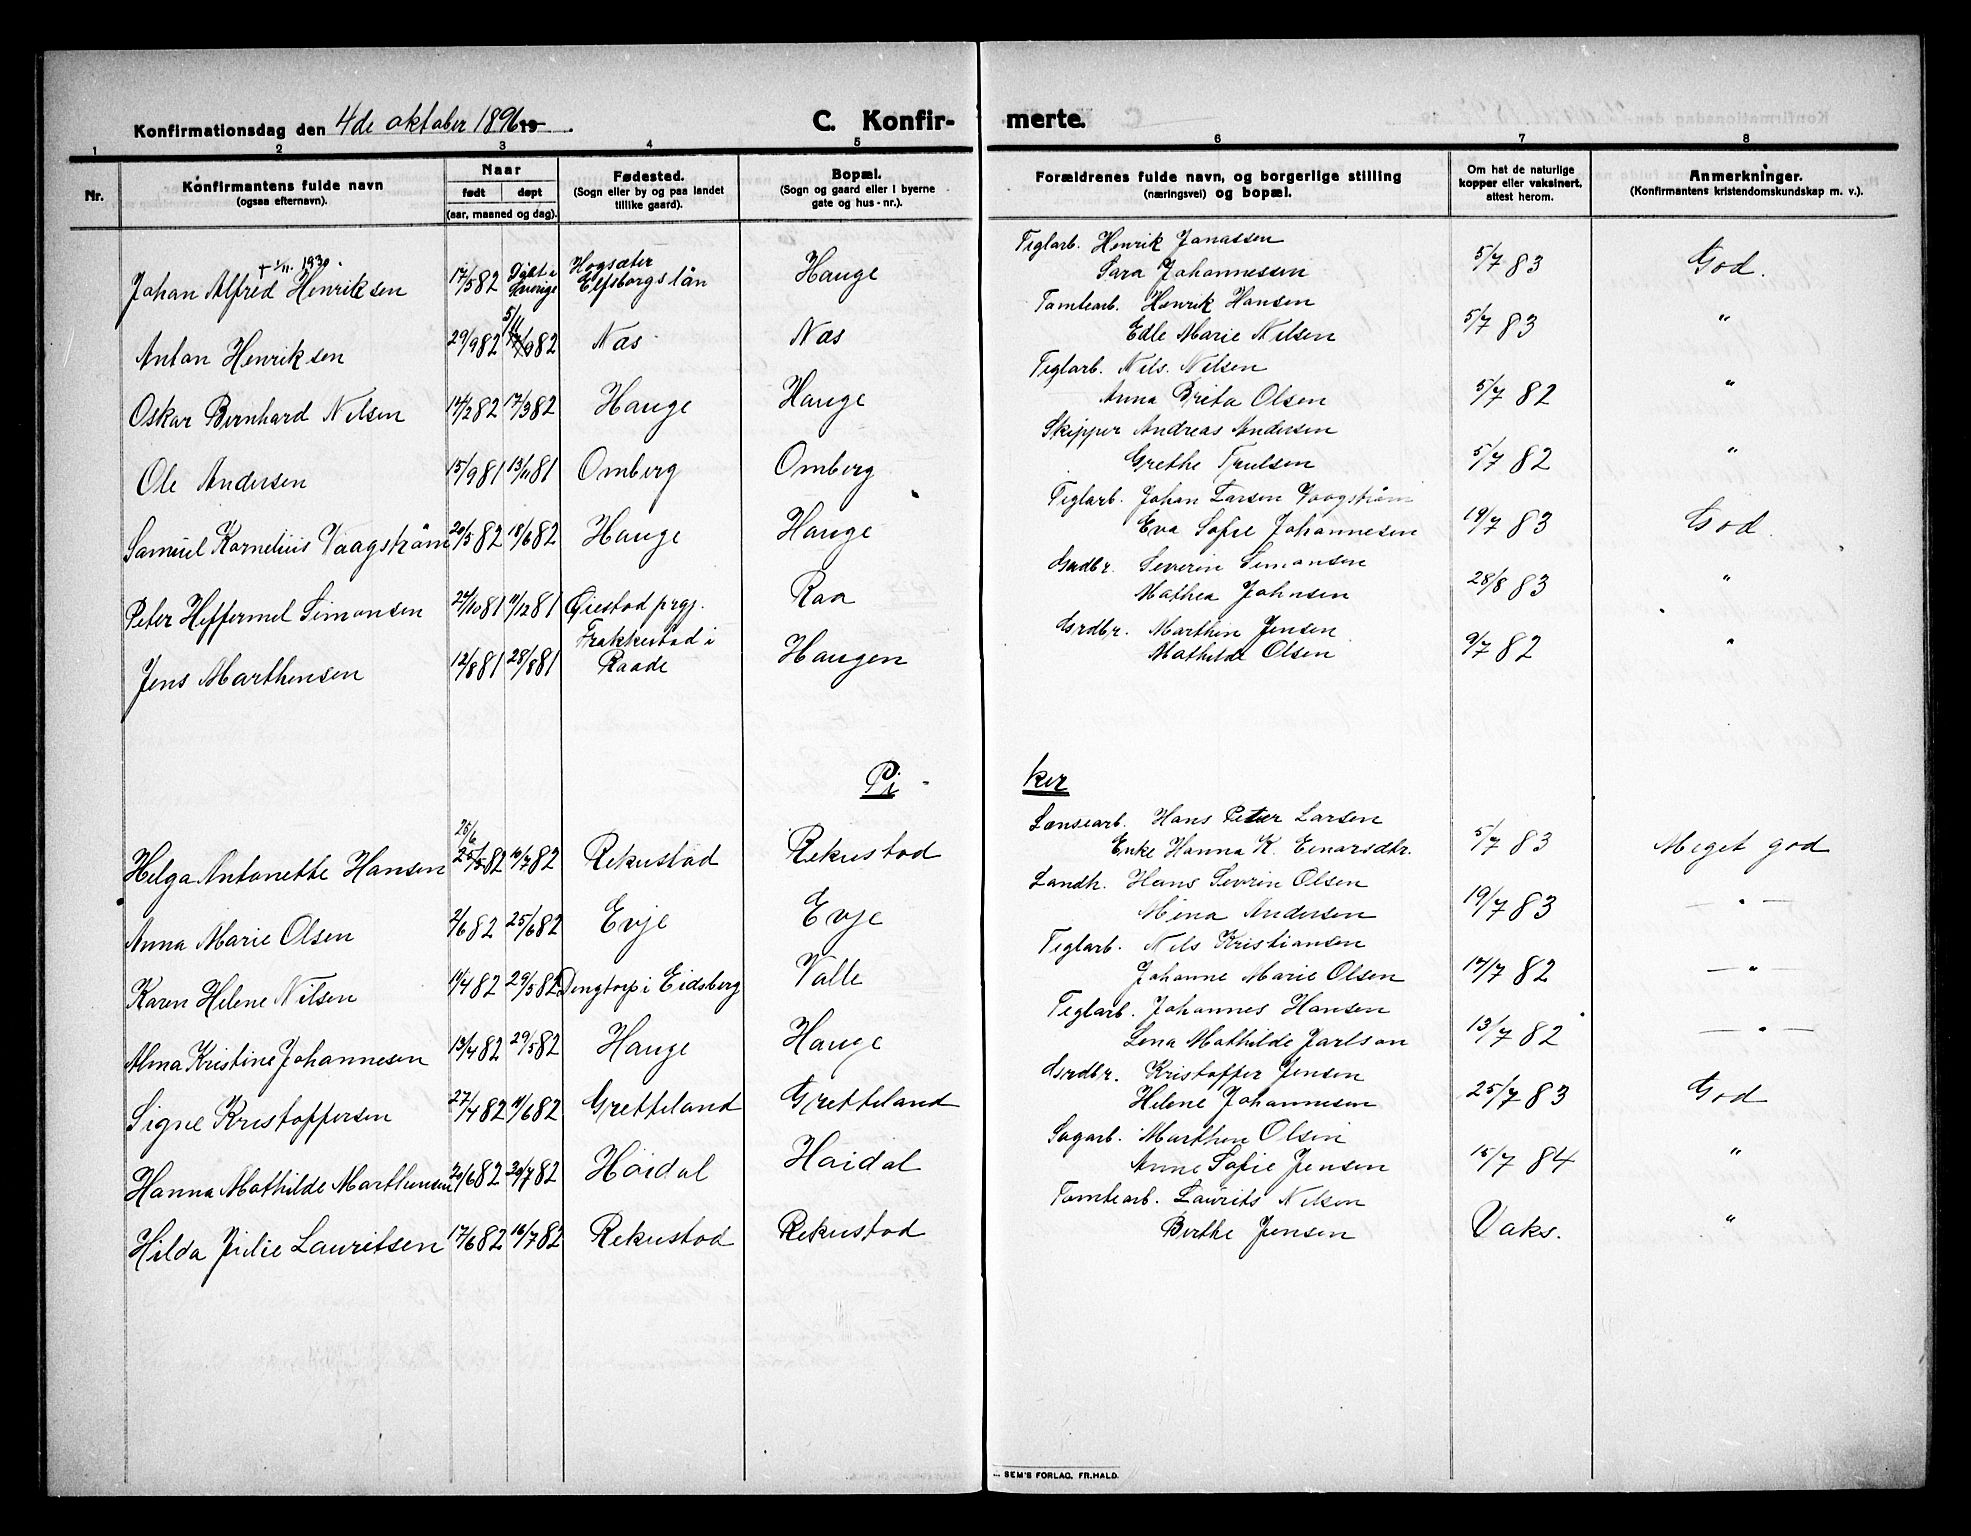 Konfirmationsdag den 4de oktober 1896 19
C. Konfir- merte.
1 2 3 4 5 6 7 8
Nr.
Konfirmantens fulde navn (ogsaa efternavn).
Naar født døpt (aar, maaned og dag).
Fødested. (Sogn eller by og paa landet tillike gaard).
Bopæl. (Sogn og gaard eller i byerne gate og hus-nr.).
Forældrenes fulde navn, og borgerlige stilling (næringsvei) og bopæl.
Om hat de naturlige kopper eller vaksinert, attest herom.
Anmerkninger. (Konfirmantens kristendomskundskap m. v.).
+ 1/11. 1930.
Teglarb. Henrik Jonassen
Johan Alfred Henriksen 17/5 82 Døbt i Sverige Hogsæter Elfsborgslän Hauge Sara Johannesen 5/7 83 God.
Tomtearb. Henrik Hansen
Anton Henriksen 29/9 82 5/11 82 Næs Næs Edle Marie Nilsen 5/7 83 "
Teglarb. Nils Nilsen
Oskar Bernhard Nilsen 14/2 82 17/3 82 Hauge Hauge Anna Brita Olsen 5/7 82 "
Skipper Andreas Andersen
Ole Andersen 15/9 81 13/11 81 Omberg Omberg Grethe Trulsen 5/7 82 "
Teglarb. Johan Larsen Vaagstrøm
Samuel Kornelius Vaagstrøm 20/5 82 18/6 82 Hauge Hauge Eva Sofie Johannesen 19/7 83 God.
Grdbr. Severin Simonsen
Peter Heffermel Simonsen 24/10 81 11/12 81 Øiestad prgj. Raa Mathea Johnsen 28/8 83 "
Grdbr. Marthin Jensen
Jens Marthinsen 12/8 81 28/8 81 Frakkestad i Raade Haugen Mathilde Olsen 9/7 82 "
Pi ker
Lænsearb. Hans Peter Larsen
25/6
Helga Antonette Hansen 25/5 82 16/7 82 Rekustad Rekustad Enke Hanna K. Einarsdtr. 5/7 83 Meget god
Landh. Hans Sevrin Olsen
Anna Marie Olsen 2/6 82 25/6 82 Evje Evje Mina Andersen 19/7 83 — " —
Teglarb. Nils Kristiansen
Karen Helene Nilsen 10/4 82 29/5 82 Dengtorp i Eidsberg Valle Johanne Marie Olsen 17/7 82 — " —
Teglarb. Johannes Hansen
Alma Kristine Johannesen 13/4 82 29/5 82 Hauge Hauge Lena Mathilde Jarlson 13/7 82 — " —
Grdbr. Kristoffer Jensen
Signe Kristoffersen 27/4 82 11/6 82 Gretteland Gretteland Helene Johannesen 25/7 83 God
Sagarb. Marthin Olsen
Hanna Mathilde Marthinsen 20/6 82 30/7 82 Höidal Høidal Anne Sofie Jensen 15/7 84 "
Tomtearb. Laurits Nilsen
Hilda Julie Lauritsen 17/6 82 16/7 82 Rekustad Rekustad Birthe Jensen Vaks. "
SEM'S FORLAG, FR.HALD.